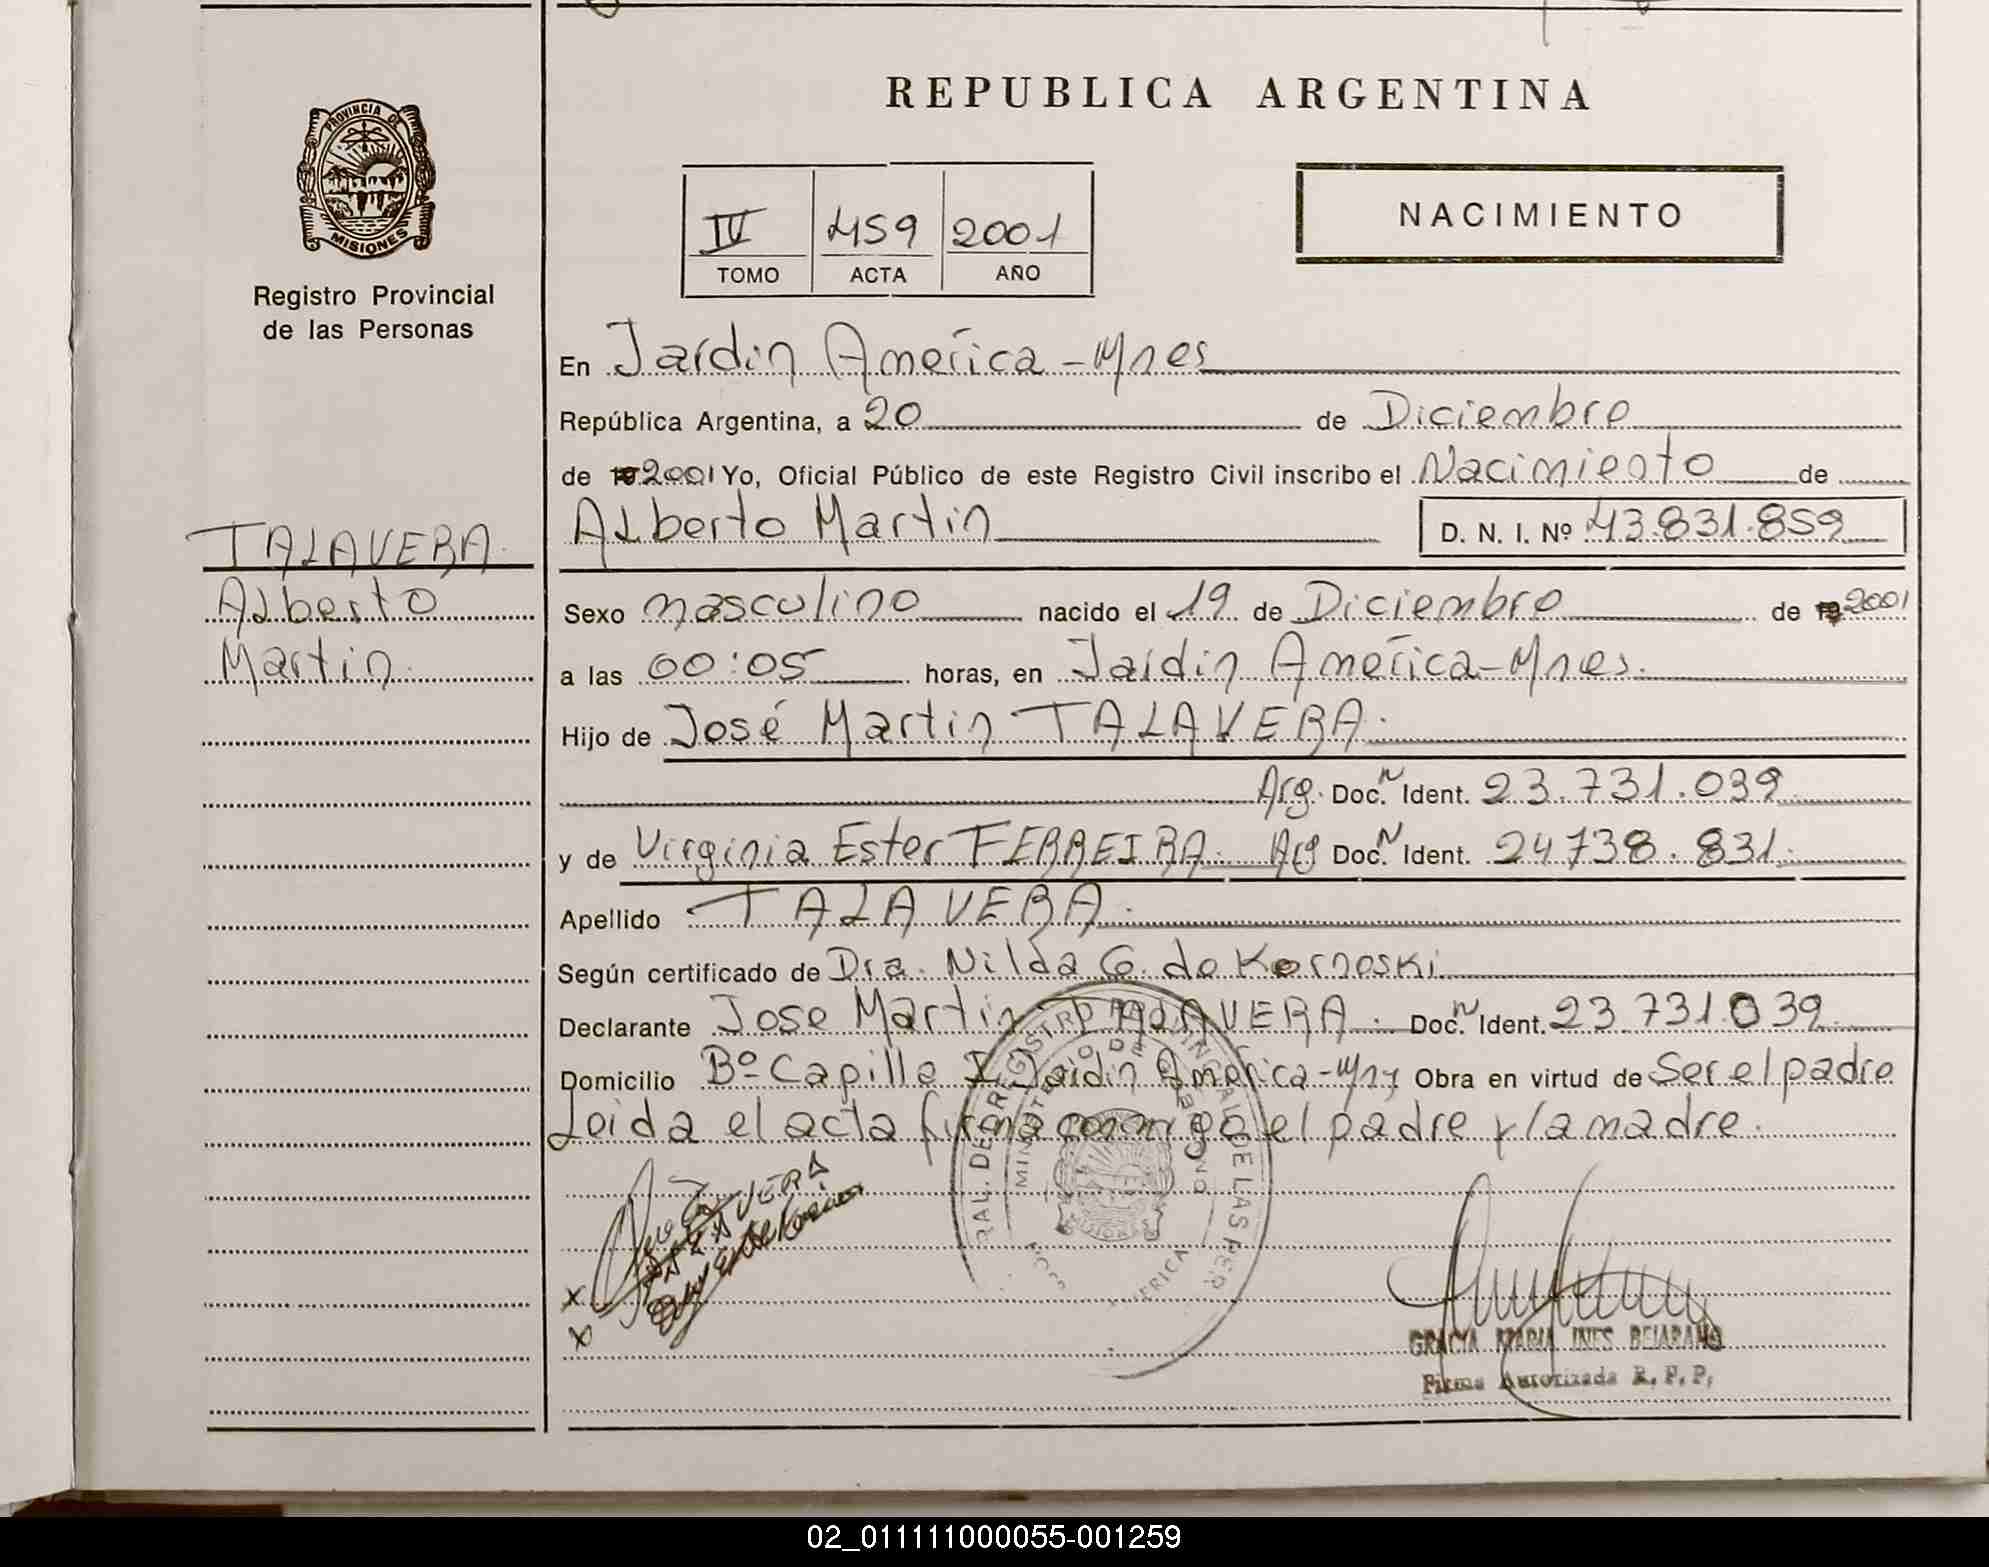 REPUBLICA ARGENTINA
PROVINCIA DE
MISIONES
Registro Provincial
de las Personas
IV 459 2001
TOMO ACTA AÑO
NACIMIENTO
En Jardin America - Mnes
República Argentina, a 20 de Diciembre
de 19 2001 Yo, Oficial Público de este Registro Civil inscribo el Nacimiento de
Alberto Martin D. N. I. Nº 43.831.859
TALAVERA
Alberto
Martin
Sexo masculino nacido el 19 de Diciembre de 19 2001
a las 00:05 horas, en Jardin America - Mnes.
Hijo de José Martin TALAVERA.
Arg. Doc. N Ident. 23.731.039
y de Virginia Ester FERREIRA. Arg Doc. N Ident. 24 738.831.
Apellido TALAVERA.
Según certificado de Dra. Nilda G. de Kornoski
Declarante Jose Martin TALAVERA. Doc. N Ident. 23 731 039
Domicilio Bº Capilla I Jardin America - Mnes Obra en virtud de Ser el padre
Leida el acta firma conmigo el padre y la madre.
TALAVERA
x
x
GRACIA MARIA INES BEJARANO
Firma Autorizada R. P. P.
02_011111000055-001259